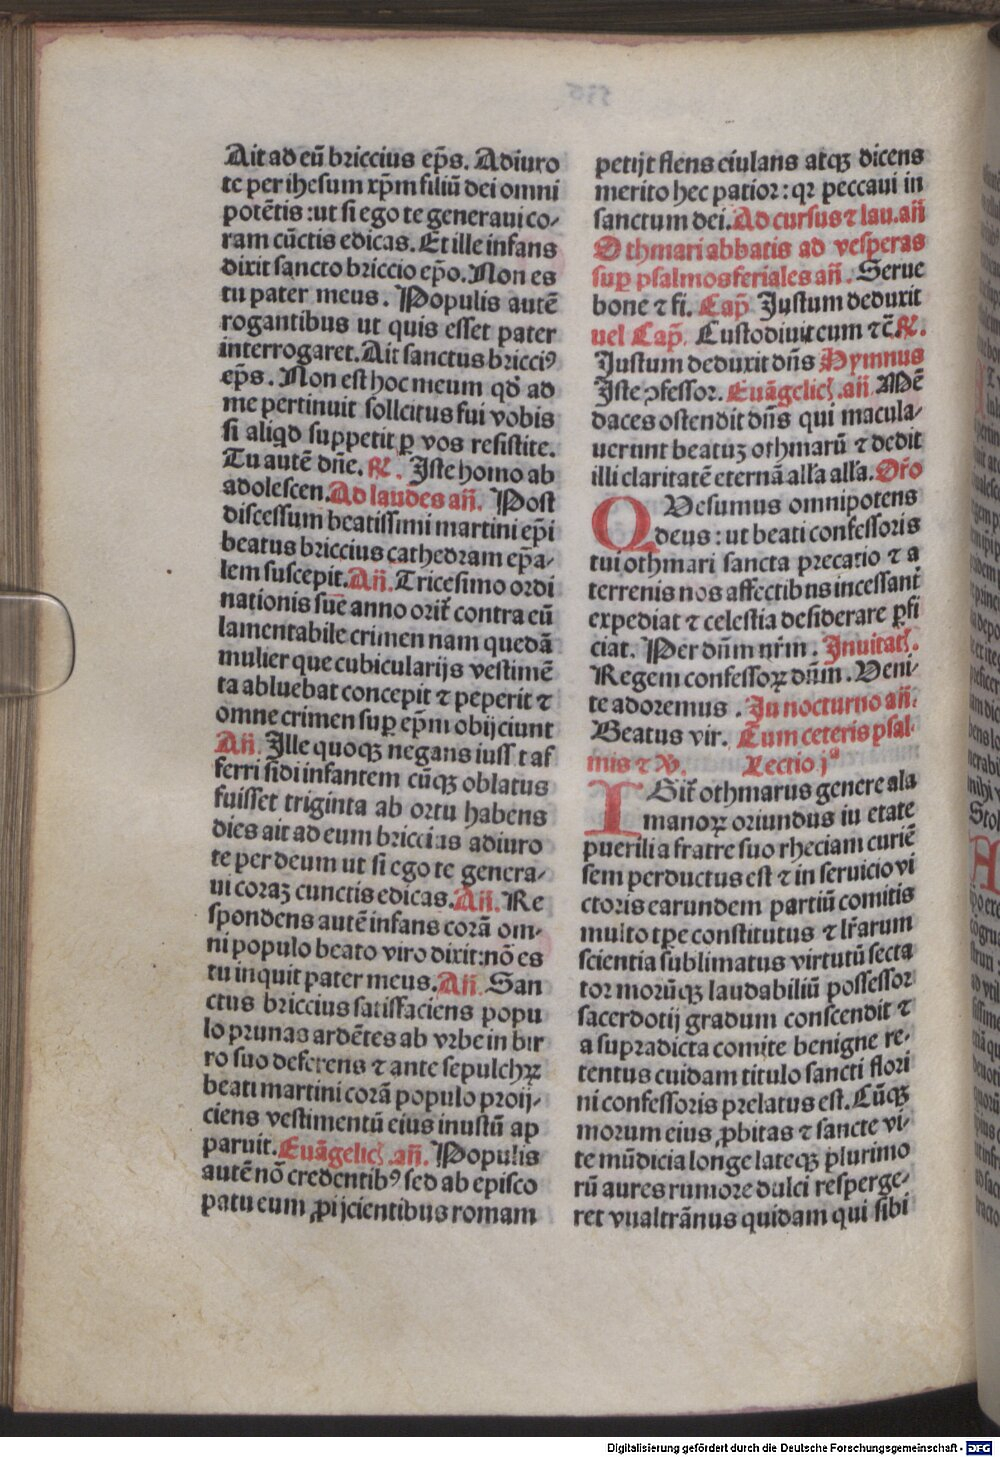 Ait ad eū briccius ep̄s. Adiuro
te per ihesum xp̄m filiū dei omni
potētis : ut si ego te generaui co-
ram cūctis edicas. Et ille infans
dixit sancto briccio ep̄o. Non es
tu pater meus. Populis autē
rogantibus ut quis esset pater
interrogaret. Ait sanctus bricciꝰ
ep̄s. Non est hoc meum qd̄ ad
me pertinuit sollcitus fui vobis
si aliqd̄ suppetit ꝑ vos resistite.
Tu autē dn̄e. ℟. Iste homo ab
adolescen. Ad laudes an̄. Post
discessum beatissimi martini ep̄i
beatus briccius cathedram ep̄a-
lem suscepit. An̄. Tricesimo ordi
nationis sue anno orit̄ contra eū
lamentabile crimen nam quedā
mulier que cubicularijs vestimē
ta abluebat concepit ⁊ peperit ⁊
omne crimen suꝑ ep̄m obijciunt
An̄. Ille quoqꝫ negans iussit af
ferri sidi infantem cūqꝫ oblatus
fuisset triginta ab ortu habens
dies ait ad eum briccius adiuro
te per deum ut si ego te genera-
ui coraꝫ cunctis edicas. An̄. Re
spondens autē infans corā om-
ni populo beato viro dixit : nō es
tu inquit pater meus. An̄. San
ctus briccius satisfaciens popu
lo prunas ardētes ab vrbe in bir
ro suo deferens ⁊ ante sepulchꝝ
beati martini corā populo proij-
ciens vestimentū eius inustū ap
paruit. Euāgelicꝭ .an̄. Populis
autē nō credentibꝰ sed ab episco
patu eum ꝓijcientibus romam
petijt flens eiulans atqꝫ dicens
merito hec patior : qꝛ peccaui in
sanctum dei. Ad cursus ⁊ lau. an̄
Othmari abbatis ad vesperas
suꝑ psalmos feriales an̄. Serue
bone ⁊ fi. Cap̄ Iustum deduxit
vel Cap̄. Custodiuit eum ⁊c̄. ℟.
Iustum deduxit dn̄s Hymnus
Iste ꝯfessor. Euāgelicꝭ .an̄. Mē
daces ostendit dn̄s qui macula-
uerunt beatuꝫ othmarū ⁊ dedit
illi claritatē eternā alla alla. Or̄o
QVesumus omnipotens
deus : ut beati confessoris
tui othmari sancta precatio ⁊ a
terrenis nos affectibns incessant̄
expediat ⁊ celestia desiderare ꝑfi
ciat. Per dn̄m nr̄m. Inuitatꝭ.
Regem confessoꝝ dn̄m. Veni-
te adoremus. In nocturno an̄.
Beatus vir. Cum ceteris psal-
mis ⁊ ℣. Lectio jᵃ
IGit̄ othmarus genere ala
manoꝝ oriundus iu etate
puerili a fratre suo rheciam curiē
sem perductus est ⁊ in seruicio vi
ctoris earundem partiū comitis
multo tꝑe constitutus ⁊ lr̄arum
scientia sublimatus virtutū secta
tor morūqꝫ laudabiliū possessor
sacerdotij gradum conscendit ⁊
a supradicta comite benigne re-
tentus cuidam titulo sancti flori
ni confessoris prelatus est. Cūqꝫ
morum eius ꝓbitas ⁊ sancte vi-
te mūdicia longe lateqꝫ plurimo
rū aures rumore dulci resperge-
ret vualtrānus quidam qui sibi
Digitalisierung gefördert durch die Deutsche Forschungsgemeinschaft - DFG